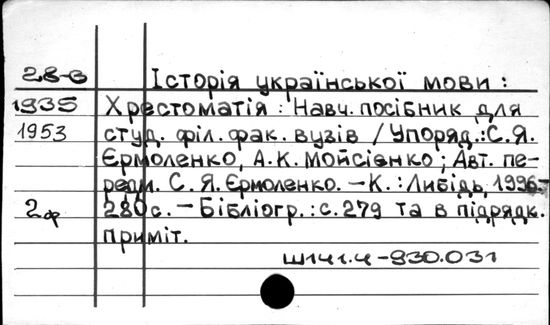 28-в Історія української мови :
1935 Хрестоматія : Навч. посібник для
1953 студ. філ. фак. вузів / Упоряд.: С.Я.
Єрмоленко, А.К. Мойсієнко ; Авт. пе-
редм. С. Я. Єрмоленко. — К. : Либідь, 1996.—
2ф 280с. — Бібліогр.: с. 279 та в підрядк.
приміт.
Ш141.4-930.031